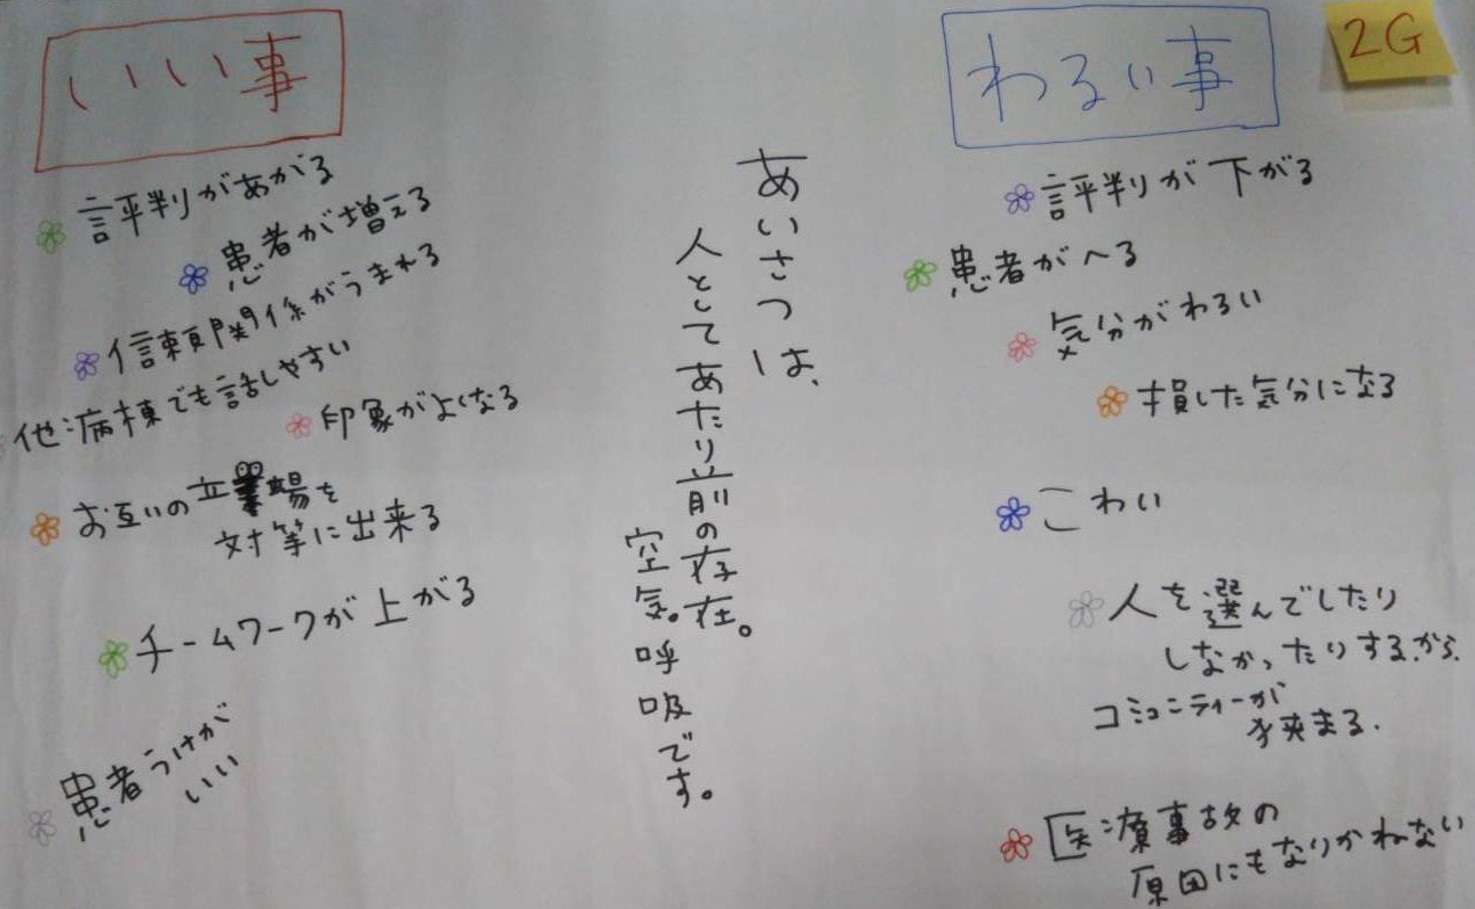 いい事
評判があがる
患者が増える
信頼関係がうまれる
他病棟でも話しやすい
印象がよくなる
お互いの立場を
対等に出来る
チームワークが上がる
患者うけが
いい
あいさつは、
人としてあたり前の存在。
空気。呼吸です。
わるい事
2G
評判が下がる
患者がへる
気分がわるい
損した気分になる
こわい
人を選んでしたり
しなかったりするから
コミュニティーが
狭まる.
医療事故の
原因にもなりかねない